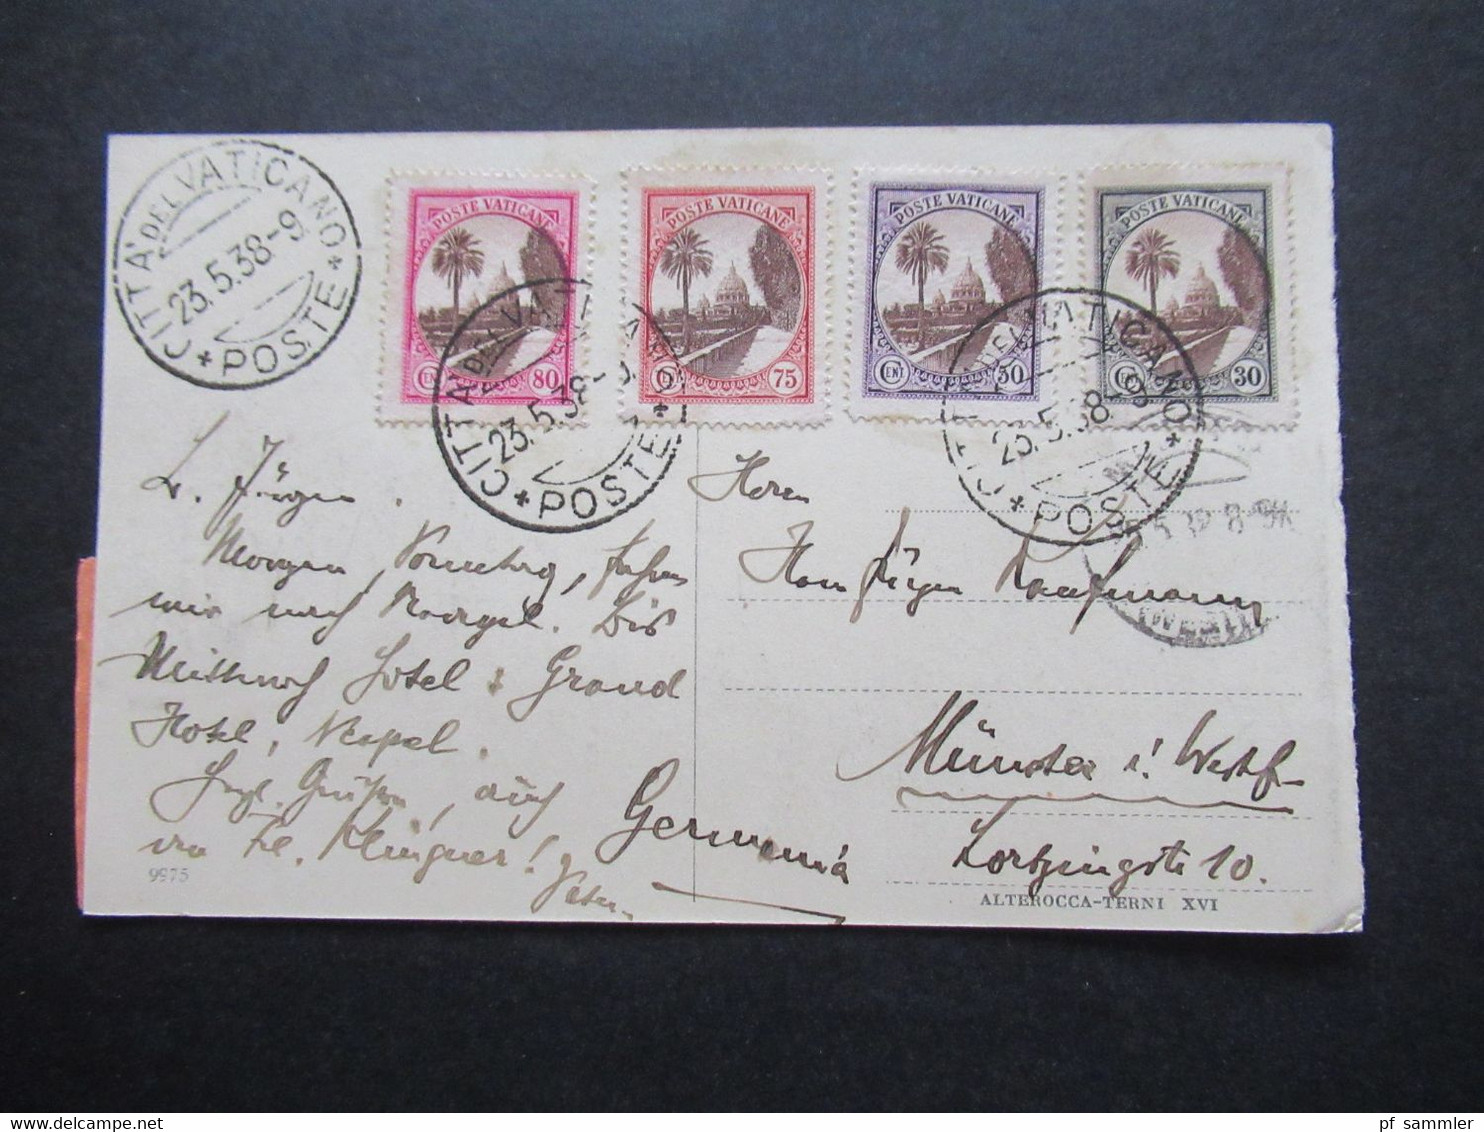 CITTÀ DEL VATICANO
23.5.38-9
* POSTE *
POSTE VATICANE
CENT 80
POSTE VATICANE
75
POSTE VATICANE
CENT 50
POSTE VATICANE
30
CITTÀ DEL VATICANO
23.5.38-9
* POSTE *
CITTÀ DEL VATICANO
23.5.38-9
* POSTE *
L. Jürgen.
Morgen, Sonntag, fahren
wir nach Neapel. Bis
Mittwoch Hotel: Grand
Hotel, Neapel.
Herzl. Grüße, auch
von Frl. Klingner!
Peter
9975
Herrn
Hans Jürgen Kaufmann
Münster i. Westf.
Germania
Lortzingstr 10.
ALTEROCCA-TERNI XVI
pf_sammler